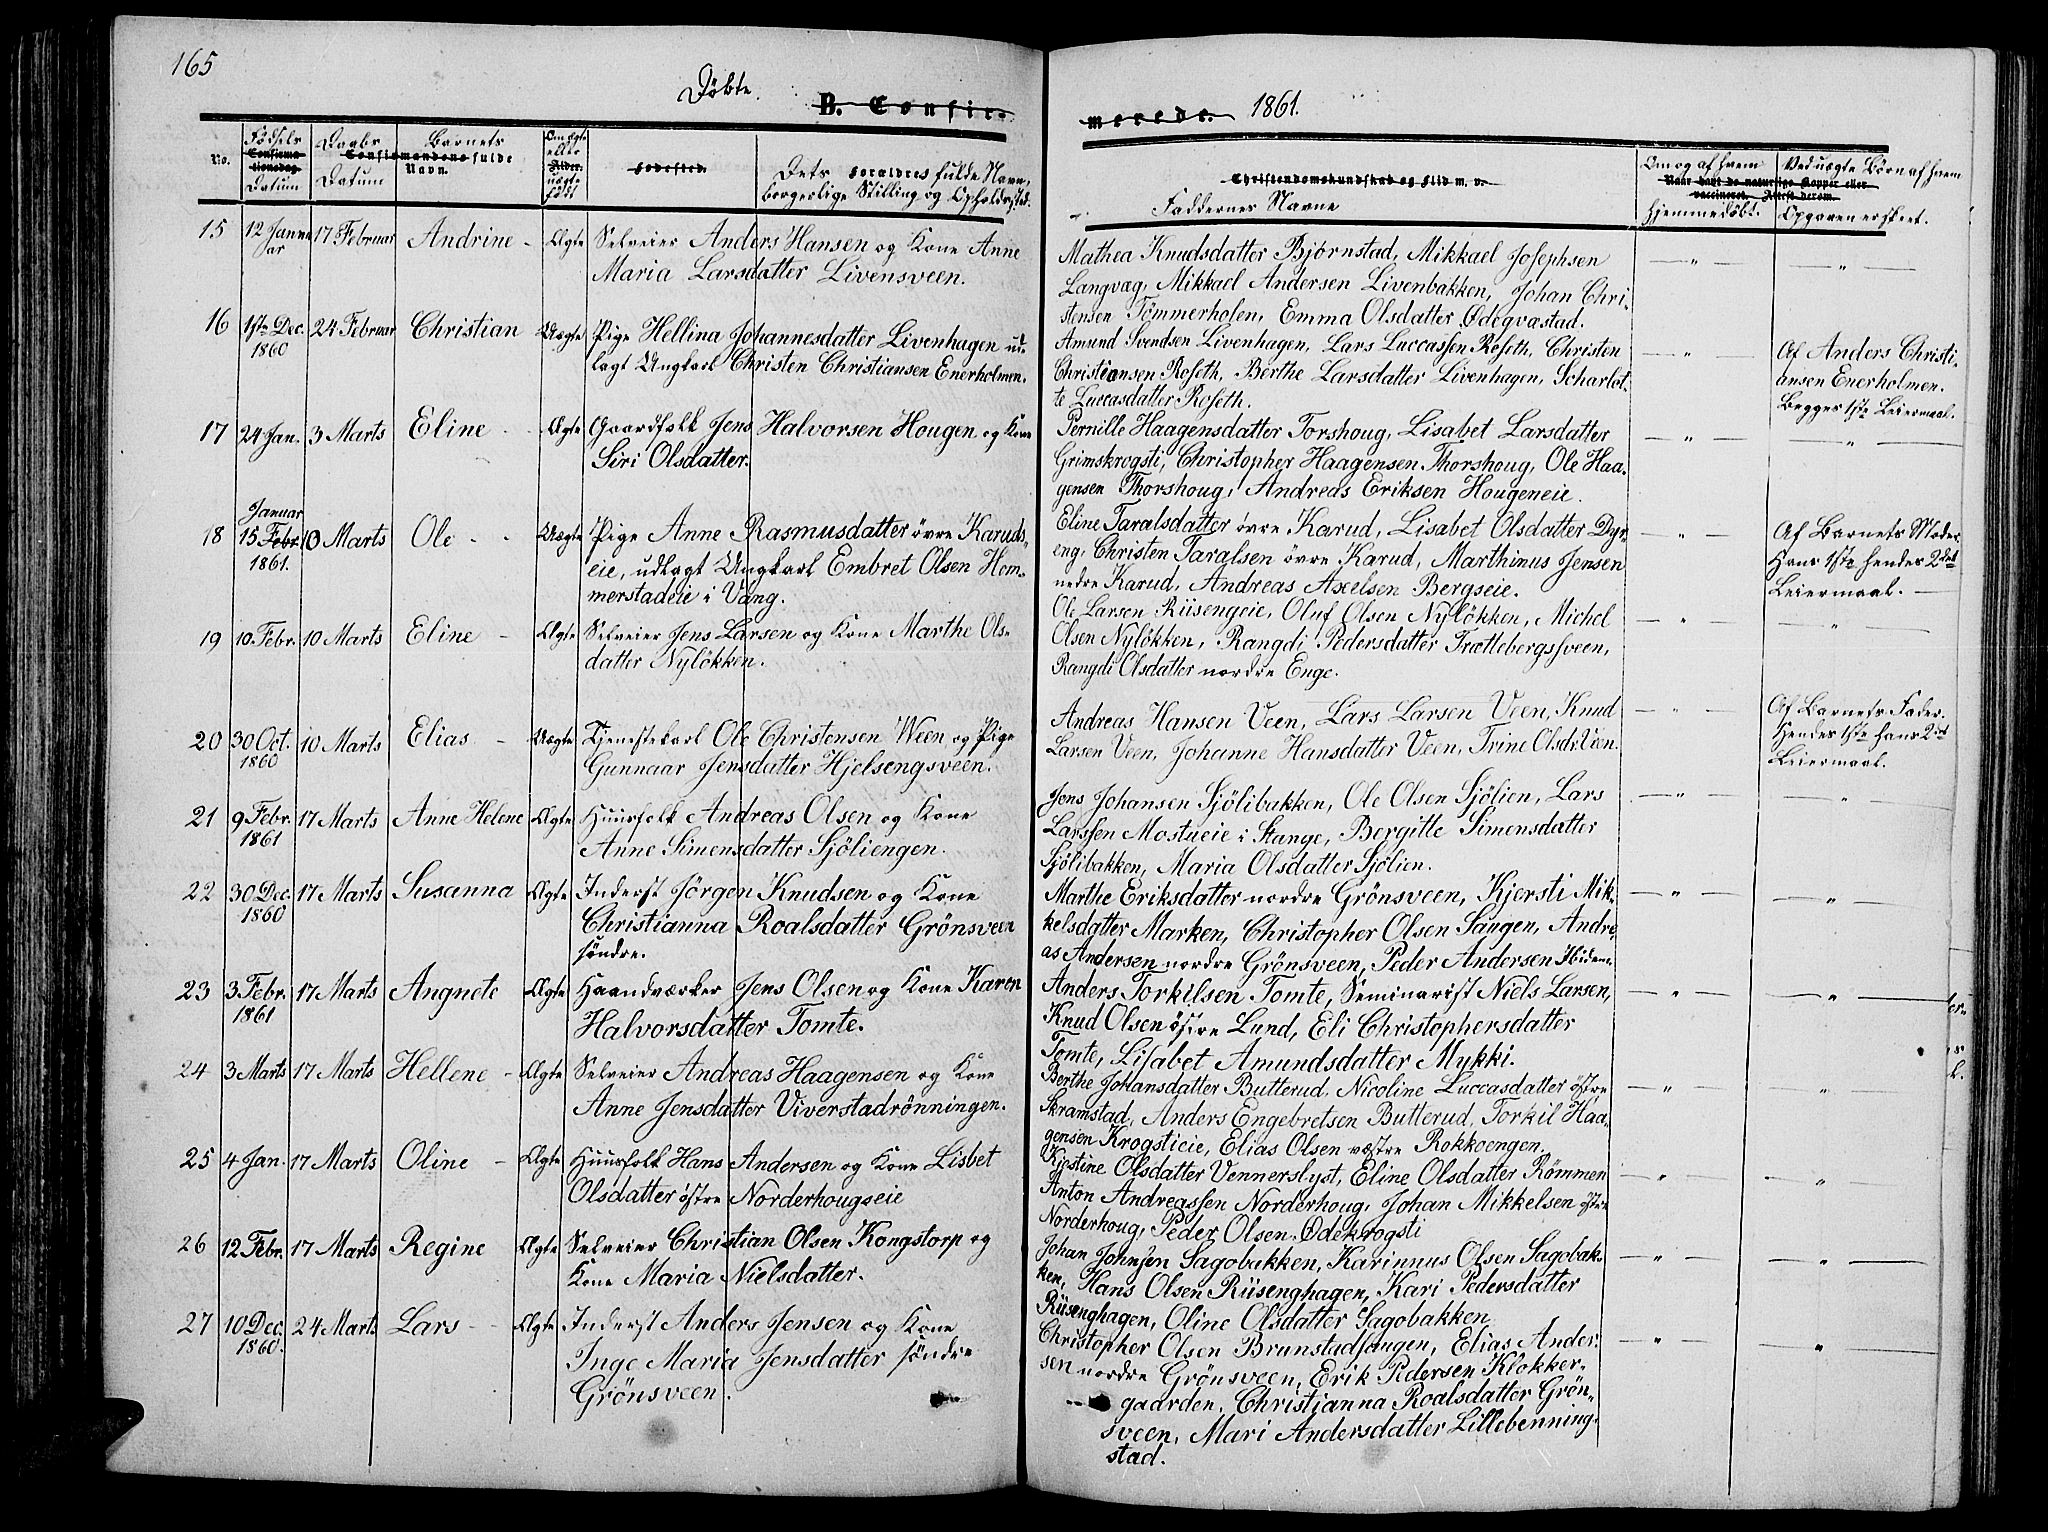 165
Döbte.
B. Confir-
merede.
1861.
No.
Fødsels
Confirma-
tionsdag
Datum
Daabs
Datum
Barnets
Confirmandens fulde
Navn.
Om ægte
eller
Alder.
uægte
født
Fødested.
Dets Forældres fulde Navn,
borgerlige Stilling og Opholdssted.
Christendomskundskab og Flid m. v.
Faddernes Navne
Om og af hvem
hjemmedøbt.
Naar havt de naturlige Kopper eller
vaccineret. Attest derom.
Ved uægte Børn af hvem
Opgaven er skeet.
15 12 Janu- 17 Februar Andrine - Ægte Selveier Anders Hansen og Kone Anne
ar Maria Larsdatter Livensveen.
Mathea Knudsdatter Bjørnstad, Mikkael Josephsen
Langvæg, Mikkael Andersen Livenbakken, Johan Chri-
stensen Tömmerholen, Emma Olsdatter Ødegvæstad.
16 1ste Dec. 24 Februar Christian Uægte Pige Hellina Johannesdatter Livenhagen ud-
1860 lagt Ungkarl Christen Christiansen Enerholmen.
Amund Svendsen Livenhagen, Lars Luccassen Roseth, Christen
Christiansen Roseth, Berthe Larsdatter Livenhagen, Scharlot-
te Luccasdatter Roseth.
Af Anders Christi-
ansen Enerholmen.
Begges 1ste Leiermaal.
17 24 Jan. 3 Marts Eline - - Ægte Gaardfolk Jens Halvorsen Hougen og Kone
Siri Olsdatter.
Pernille Haagensdatter Torshoug, Lisabet Larsdatter
Grimskrogsti, Christopher Haagensen Thorshoug, Ole Haa-
gensen Thorshoug, Andreas Eriksen Hougeneie.
Januar
18 15 Febr. 10 Marts Ole - - Uægte Pige Anne Rasmusdatter övre Karuds-
1861. eie, udlagt Ungkarl Embret Olsen Hom-
merstadeie i Vang.
Eline Taralsdatter övre Karud, Lisabet Olsdatter Dyr-
eng, Christen Taralsen övre Karud, Marthinus Jensen
nedre Karud, Andreas Axelsen Bergseie.
Af Barnets Moder.
Hans 1ste hendes 2det
Leiermaal. -
19 10 Febr. 10 Marts Eline - Ægte Selveier Jens Larsen og Kone Marthe Ols-
datter Nylökken.
Ole Larsen Riisengeie, Oluf Olsen Nylökken, Michel
Olsen Nylökken, Rangdi Pedersdatter Trættebergssveen,
Rangdi Olsdatter nordre Enge.
20 30 Oct. 10 Marts Elias - Uægte Tjenestekarl Ole Christensen Ween og Pige
1860 Gunnaar Jensdatter Hjelsengsveen.
Andreas Hansen Veen, Lars Larsen Veen, Knud
Larsen Veen, Johanne Hansdatter Veen, Trine Olsdr. Veen.
Af Barnets Fader.
Hendes 1ste hans 2det
Leiermaal.
21 9 Febr. 17 Marts Anne Helene Ægte Huusfolk Andreas Olsen og Kone
1861 Anne Simensdatter Sjöliengen.
Jens Johansen Sjölibakken, Ole Olsen Sjölien, Lars
Larssen Mostueie i Stange, Bergitte Simensdatter
Sjölibakken, Maria Olsdatter Sjölien.
22 30 Dec. 17 Marts Susanna Ægte Inderst Jörgen Knudsen og Kone
1860 Christianna Roalsdatter Grönsveen
söndre.
Marthe Eriksdatter nordre Grönsveen, Kjersti Mik-
kelsdatter Marken, Christopher Olsen Saugen, Andre-
as Andersen nordre Grönsveen, Peder Andersen Ibidem
23 3 Febr. 17 Marts Angnete Ægte Haandværker Jens Olsen og Kone Karen
1861 Halvorsdatter Tomte.
Anders Torkilsen Tomte, Seminarist Niels Larsen,
Knud Olsen östre Lund, Eli Christophersdatter
Tomte, Lisabet Amundsdatter Mykki.
24 3 Marts 17 Marts Hellene - Ægte Selveier Andreas Haagensen og Kone
Anne Jensdatter Viverstadrönningen.
Berthe Johansdatter Butterud, Nicoline Luccasdatter östre
Skramstad, Anders Engebretsen Butterud, Torkil Haa-
gensen Krogstieie, Elias Olsen væstre Rokkoengen.
25 4 Jan. 17 Marts Oline - Ægte Huusfolk Hans Andersen og Kone Lisbet
Olsdatter östre Norderhougseie
Kjestine Olsdatter Vennerslyst, Eline Olsdatter Römmen
Anton Andreassen Norderhoug, Johan Mikkelsen östre
Norderhoug, Peder Olsen Ødekrogsti
26 12 Febr. 17 Marts Regine Ægte Selveier Christian Olsen Kongstorp og
Kone Maria Nielsdatter.
Johan Johnsen Sagobakken, Karinnus Olsen Sagobak-
ken, Hans Olsen Riisenghagen, Kari Pedersdatter
Riisenghagen, Oline Olsdatter Sagobakken
27 10 Dec. 24 Marts Lars - - Ægte Inderst Anders Jensen og Kone
1860. Inge Maria Jensdatter söndre
Grönsveen.
Christopher Olsen Brunstadsaugen, Elias Ander-
sen nordre Grönsveen, Erik Pedersen Klokker-
gaarden, Christianna Roalsdatter Grön-
sveen, Mari Andersdatter Lillebenning-
stad.